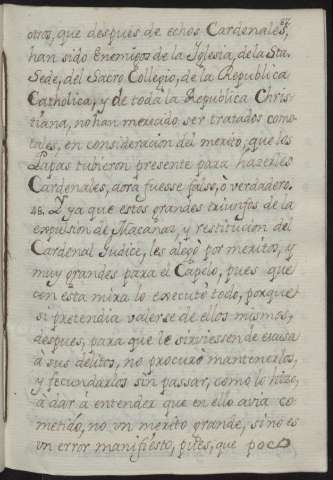 67
otros, que despues de echos Cardenales,
han sido Enemigos de la Iglesia, de la Sta.
Sede, del Sacro Collegio, de la Republica
Catholica, y de toda la Republica Chris-
tiana, no han merecido ser tratados como
tales, en consideracion del merito, que los
Papas tubieron presente para hazerles
Cardenales, aora fuesse falso, ò verdadero.
48. Y ya que estos grandes triunfos de la
expulsion de Macanaz, y restitucion del
Cardenal Judice, les alegò por meritos, y
muy grandes para el Capelo, pues que
con esta mira lo executò todo, porque
si pretendia valerse de ellos mismos,
despues, para que le sirviessen de escusa
à sus delitos, no procurò mantenerlos,
y fecundarlos sin passar, como lo hizo,
à dar à entender que en ello avia co-
metido, no un merito grande, si no es
un error manifiesto, pues, que poco